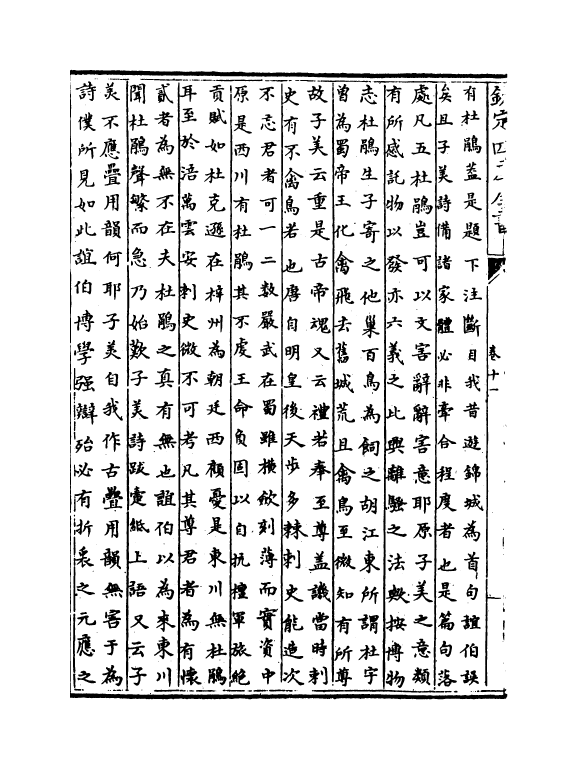 欽定四庫全書
卷十一
有杜鵑蓋是題下注斷自我昔遊錦城為首句誼伯誤
矣且子美詩備諸家體必非牽合程度者也是篇句落
處凡五杜鵑豈可以文害辭辭害意耶原子美之意類
有所感託物以發亦六義之比興離騷之法歟按博物
志杜鵑生子寄之他巢百鳥為飼之胡江東所謂杜宇
曾為蜀帝王化禽飛去舊城荒且禽鳥至微知有所尊
故子美云重是古帝魂又云禮若奉至尊盖譏當時刺
史有不禽鳥若也唐自明皇後天步多棘刺史能造次
不忘君者可一二數嚴武在蜀雖横歛刻薄而實資中
原是西川有杜鵑其不虔王命負固以自抗擅軍旅絶
貢賦如杜克遜在梓州為朝廷西顧憂是東川無杜鵑
耳至於涪萬雲安刺史微不可考凡其尊君者為有懷
貳者為無不在夫杜鵑之真有無也誼伯以為來東川
聞杜鵑聲繁而急乃始歎子美詩跋疐紙上語又云子
美不應疊用韻何耶子美自我作古疊用韻無害于為
詩僕所見如此誼伯博學强辯殆必有折衷之元應之